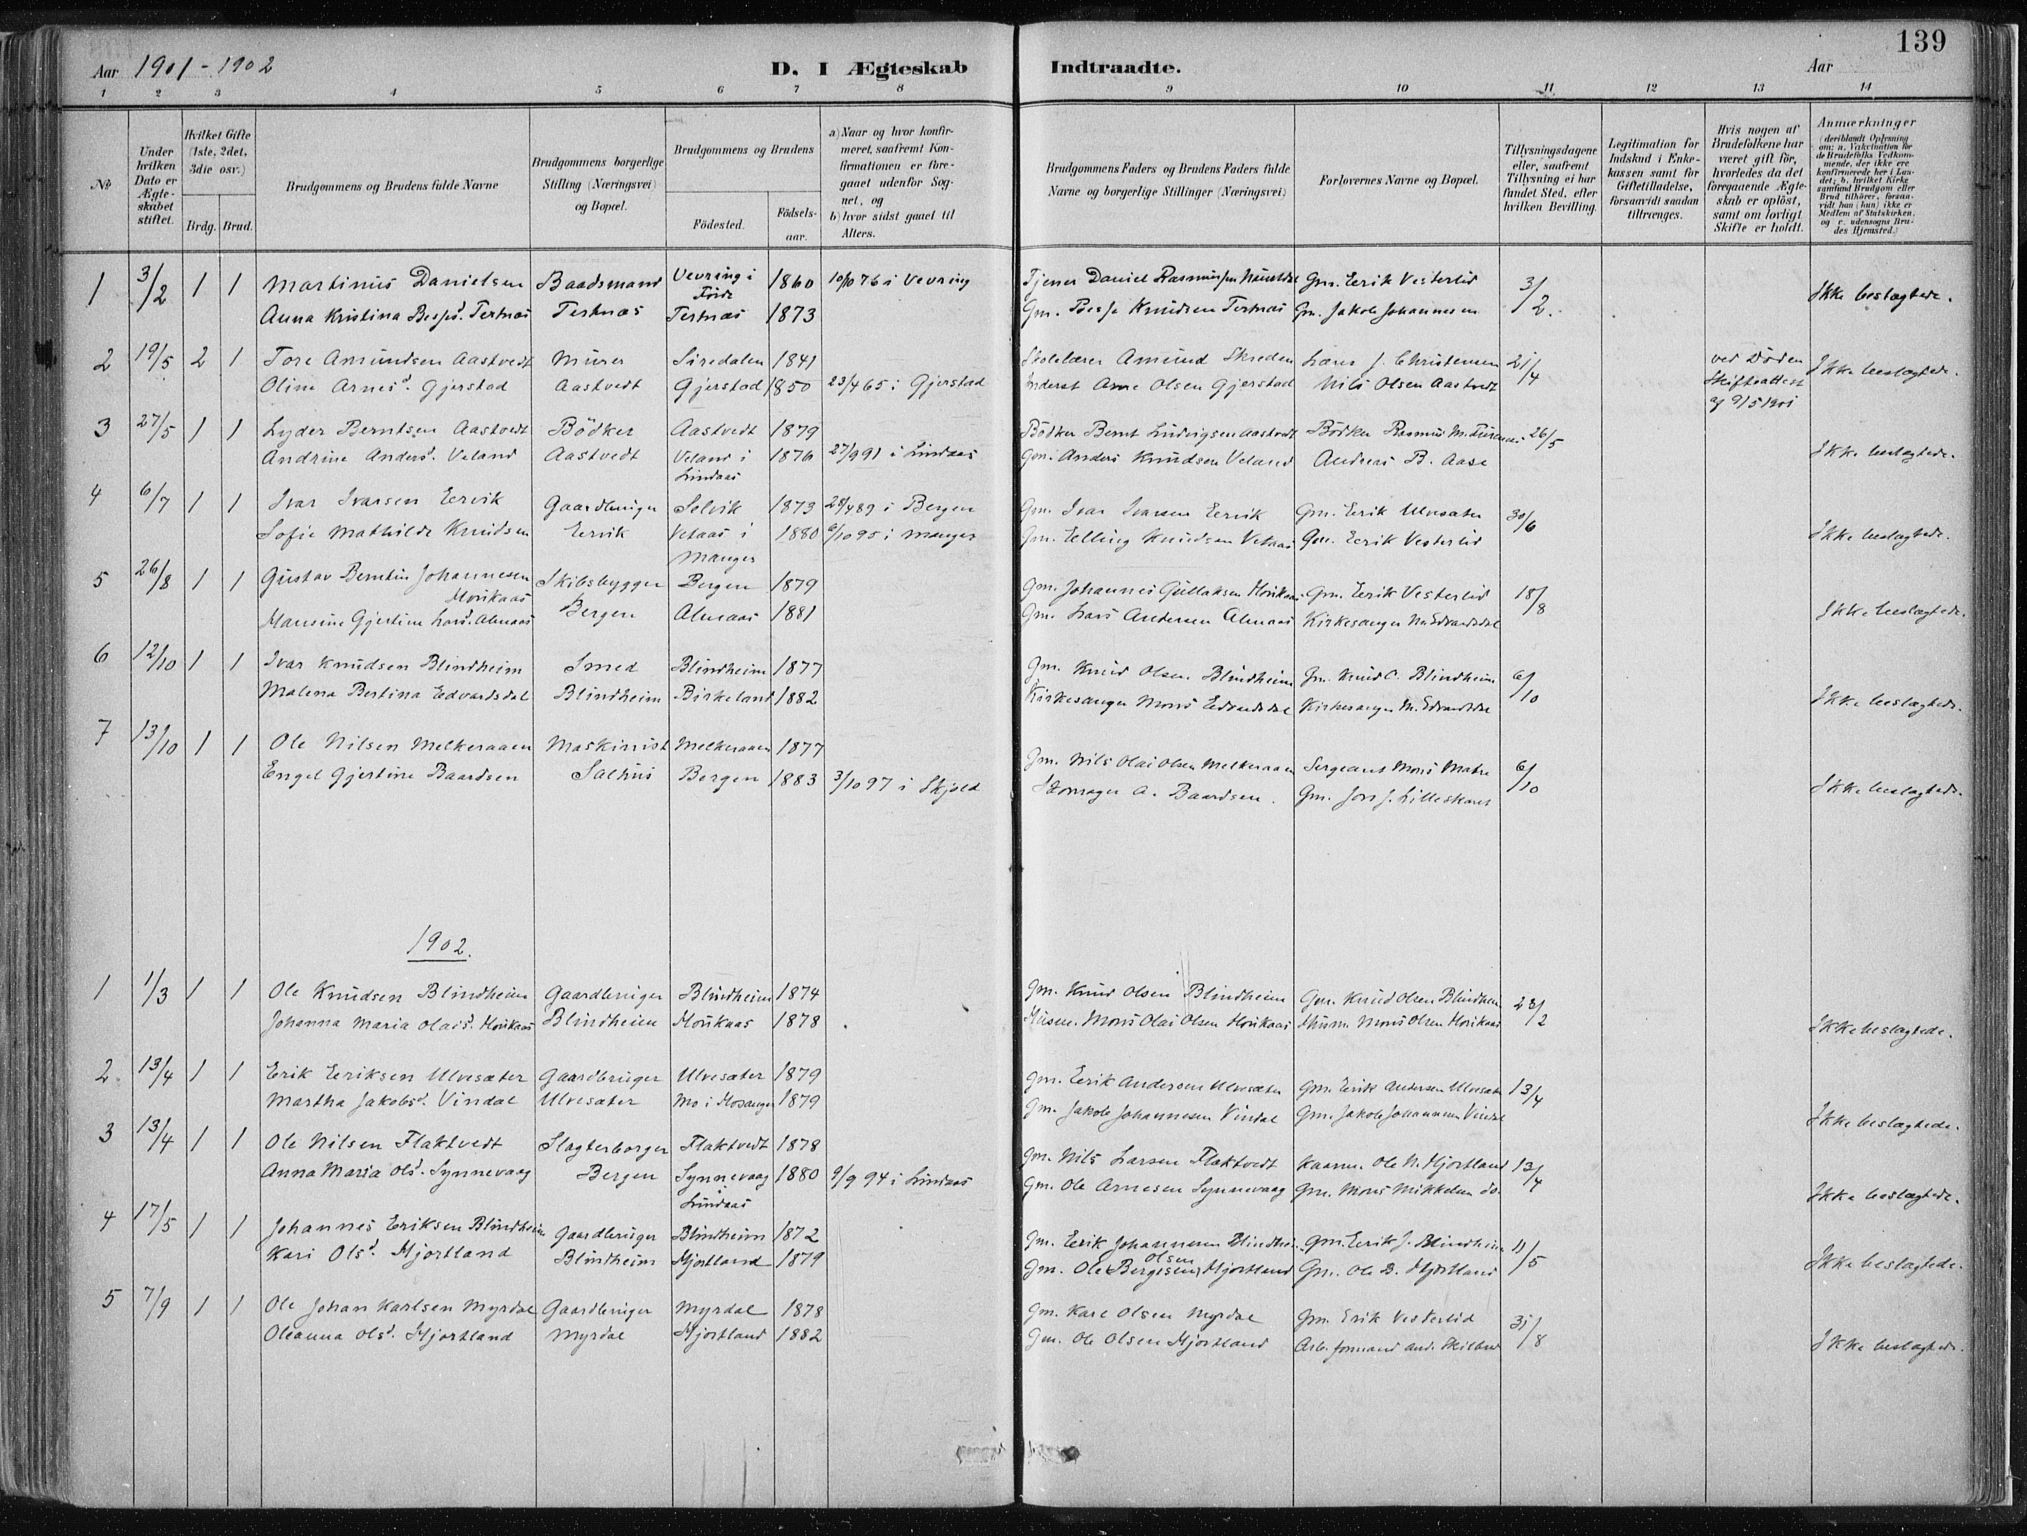 139
Aar 1901-1902 D. I Ægteskab Indtraadte. Aar
1 2 3 4 5 6 7 8 9 10 11 12 13 14
№
Under hvilken Dato er Ægteskabet stiftet.
Hvilket Gifte (1ste, 2det, 3die osv.)
Brdg. Brud.
Brudgommens og Brudens fulde Navne
Brudgommens borgerlige Stilling (Næringsvei) og Bopæl.
Brudgommens og Brudens
Fødested. Fødselsaar.
a) Naar og hvor konfirmeret, saafremt Konfirmationen er foregaaet udenfor Sognet, og
b) hvor sidst gaaet til Alters.
Brudgommens Faders og Brudens Faders fulde Navne og borgerlige Stillinger (Næringsvei)
Forlovernes Navne og Bopæl.
Tillysningsdagene eller, saafremt Tillysning ei har fundet Sted, efter hvilken Bevilling.
Legitimation for Indskud i Enkekassen samt for Giftetilladelse, forsaavidt saadan tiltrænges.
Hvis nogen af Brudefolkene har været gift før, hvorledes da det foregaaende Ægteskab er opløst, samt om lovligt Skifte er holdt.
Anmærkninger (deriblandt Oplysning om: a. Vakcination for de Brudefolks Vedkommende, der ikke ere konfirmerede her i Landet; b. hvilket Kirkesamfund Brudgom eller Brud tilhører, forsaavidt han (hun) ikke er Medlem af Statskirken, og c. udensogns Brudes Hjemsted.)
1 3/2 1 1 Martinus Danielsen Baadsmand Vevring i Førde 1860 10/10 76 i Vevring Tjener Daniel Rasmussen Gm. Eerik Vesterlid 3/2
Anna Kristina Besjsd. Tertnæs Tertnæs Tertnæs 1873 Gm. Besje Knudsen Tertnæs Gm. Jakob Johannesen Ikke beslægtede.
2 19/5 2 1 Tore Amundsen Aastvedt Murer Siredalen 1841 Skolelærer Amund Skreden Lærer J. Christensen 21/4 ved Døden
Oline Arnesd. Gjerstad Aastvedt Gjerstad 1850 23/4 65 i Gjerstad Inderst Arne Olsen Gjerstad Nils Olsen Aastvedt Skifteattest af 9/5 1901 Ikke beslægtede.
3 27/5 1 1 Lyder Berntsen Aastvedt Bödker Aastvedt 1879 Bödker Bernt Ludvigsen Aastvedt Bödker Rasmus M. 26/5
Andrine Andersd. Veland Aastvedt Veland i Lindaas 1876 27/9 91 i Lindaas Gm. Anders Knudsen Veland Andreas B. Aase Ikke beslægtede.
4 6/7 1 1 Ivar Ivarsen Eervik Gaardbruger Selvik 1873 28/4 89 i Bergen Gm. Ivar Ivarsen Eervik Gm. Eerik Ulvesæter 30/6
Sofie Mathilde Knudsen Eervik Vetaas i Manger 1880 6/10 95 i Manger Gm. Elling Knudsen Vetaas Gm. Eerik Vesterlid Ikke beslægtede.
5 26/8 1 1 Gustav Berntin Johannesen Houkaas Skibsbygger Bergen 1879 Gm. Johannes Gullaksen Houkaas Gm. Eerik Vesterlid 18/8
Gjertine Larsd. Almaas Bergen Almaas 1881 Gm. Lars Andersen Almaas Kirkesanger M. Edvardsdal Ikke beslægtede.
6 12/10 1 1 Ivar Knudsen Blindheim Smed Blindheim 1877 Gm. Knud Olsen Blindheim Gm. Knud O. Blindheim 6/10
Malena Bertina Edvardsdal Blindheim Birkeland 1882 Kirkesanger Mons Edvardsdal Kirkesanger M. Edvardsdal Ikke beslægtede.
7 13/10 1 1 Ole Nilsen Melkeraaen Maskinist Melkeraaen 1877 Gm. Nils Olai Olsen Melkeraaen Sergeant Mons Matre 6/10
Engel Gjertine Baardsen Salhus Bergen 1883 3/10 97 i Skjold Skomager A. Baardsen. Gm. Jon J. Lilleskaret Ikke beslægtede.
1902.
1 1/3 1 1 Ole Knudsen Blindheim Gaardbruger Blindheim 1874 Gm. Knud Olsen Blindheim Gm. Knud Olsen Blindheim 23/2
Johanna Maria Olaisd. Houkaas Blindheim Houkaas 1878 Husm. Mons Olai Olsen Houkaas Husm. Mons Olsen Houkaas Ikke beslægtede.
2. 13/4 1 1 Erik Eeriksen Ulvesæter Gaardbruger Ulvesæter 1879 Gm. Eerik Andersen Ulvesæter Gm. Eerik Andersen Ulvesæter 13/4
Martha Jakobsd. Vindal Ulvesæter Mo i Hosanger 1879 Gm. Jakob Johannesen Vindal Gm. Jakob Johannesen Vindal Ikke beslægtede.
3 13/4 1 1 Ole Nilsen Flaktvedt Slagterborger Flaktvedt 1878 Gm. Nils Larsen Flaktvedt Kaarm. Ole N. Hjortland 13/4
Anna Maria Olsd. Synnevaag Bergen Synnevaag i Lindaas 1880 9/9 94 i Lindaas Gm. Ole Arnesen Synnevaag Gm. Mons Mikkelsen do. Ikke beslægtede.
4 17/5 1 1 Johannes Eriksen Blindheim Gaardbruger Blindheim 1872 Gm. Eerik Johannesen Blindheim Gm. Eerik J. Blindheim 11/5
Kari Olsd. Hjortland Blindheim Hjortland 1879 Gm. Ole Olsen Bergesen Hjortland Gm. Ole B. Hjortland Ikke beslægtede.
5 7/9 1 1 Ole Johan Karlsen Myrdal Gaardbruger Myrdal 1878 Gm. Karl Olsen Myrdal Gm. Erik Vesterlid 31/8
Oleanna Olsd. Hjortland Myrdal Hjortland 1882 Gm. Ole Olsen Hjortland Arb. formand And. Ikke beslægtede.